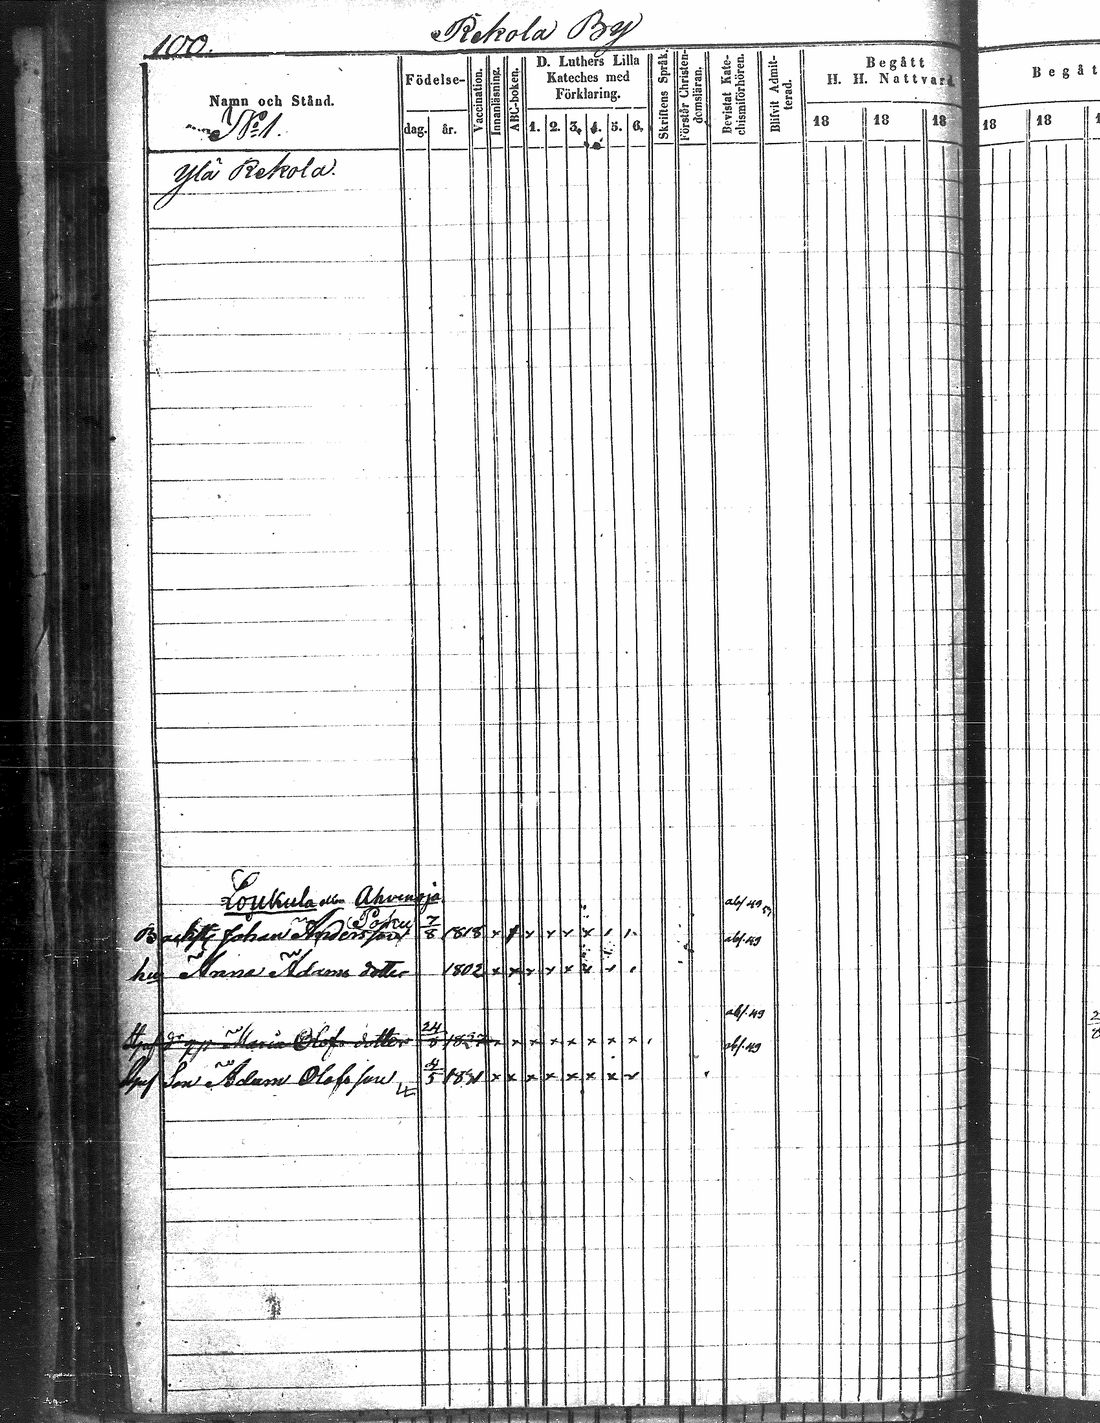 100.
Rekola By
Namn och Stånd.
Födelse-
dag. år.
Vaccination.
Innanläsning.
ABC-boken.
D. Luthers Lilla
Kateches med
Förklaring.
1. 2. 3. 4. 5. 6.
Skriftens Språk.
Förstår Christen-
domsläran.
Bevistat Kate-
chismiförhören.
Blifvit Admit-
terad.
Begått
H. H. Nattvard
18 18 18
Begåt
18 18 1
No 1.
Ylä Rekola.
Loukula eller Ahvensjä
Poku
Johan Andersson 7/8 1818 x x x x x x
abf 49
hu Anna Adams dotter 1802 x x x x x x
abf 49
dr Maria Olofs dotter 24/8 1827 x x x x x x x
abf 49
Son Adam Olofsson 4/5 1831 x x x x x x x
abf 49